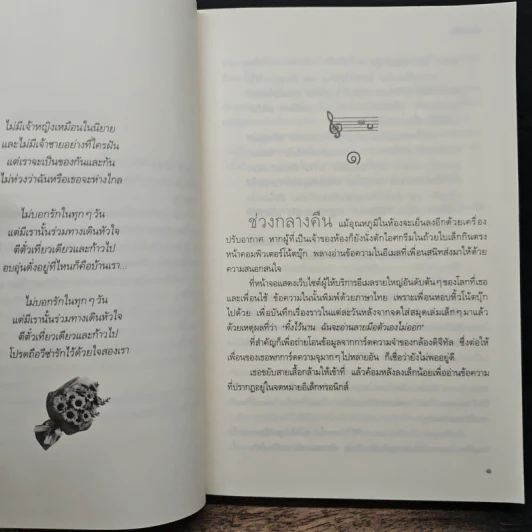 ไม่มีเจ้าหญิงเหมือนในนิยาย
และไม่มีเจ้าชายอย่างที่ใครฝัน
แต่เราจะเป็นของกันและกัน
ไม่ห่วงว่าฉันหรือเธอจะห่างไกล
ไม่บอกรักในทุกๆ วัน
แต่มีเรานั้นร่วมทางเดินหัวใจ
ตีตั๋วเที่ยวเดียวและก้าวไป
อบอุ่นตั้งอยู่ที่ไหนก็คือบ้านเรา...
ไม่บอกรักในทุกๆ วัน
แต่มีเรานั้นร่วมทางเดินหัวใจ
ตีตั๋วเที่ยวเดียวและก้าวไป
โปรดถือวีซ่ารักไว้ด้วยใจสองเรา
๑
ช่วงกลางคืน แม้อุณหภูมิในห้องจะเย็นลงอีกด้วยเครื่อง
ปรับอากาศ หากผู้ที่เป็นเจ้าของห้องก็ยังนั่งตักไอศกรีมในถ้วยใบเล็กกินตรง
หน้าคอมพิวเตอร์โน้ตบุ๊ก พลางอ่านข้อความในอีเมลที่เพื่อนสนิทส่งมาให้ด้วย
ความสนอกสนใจ
ที่หน้าจอแสดงเว็บไซต์ผู้ให้บริการอีเมลรายใหญ่อันดับต้นๆ ของโลกที่เธอ
และเพื่อนใช้ ข้อความในนั้นพิมพ์ด้วยภาษาไทย เพราะเพื่อนหอบหิ้วโน้ตบุ๊ก
ไปด้วย เพื่อบันทึกเรื่องราวในแต่ละวันหลังจากจดใส่สมุดเล่มเล็กๆ มาแล้ว
ด้วยเหตุผลที่ว่า "ทิ้งไว้นาน ฉันจะอ่านลายมือตัวเองไม่ออก"
ที่สำคัญก็เพื่อถ่ายโอนข้อมูลจากการ์ดความจำของกล้องดิจิทัล ซึ่งต่อให้
เพื่อนของเธอพกการ์ดความจุมากๆ ไปหลายอัน ก็เชื่อว่ายังไม่พออยู่ดี
เธอขยับสายเสื้อกล้ามให้เข้าที่ แล้วค้อมหลังลงเล็กน้อยเพื่ออ่านข้อความ
ที่ปรากฏอยู่ในจดหมายอิเล็กทรอนิกส์